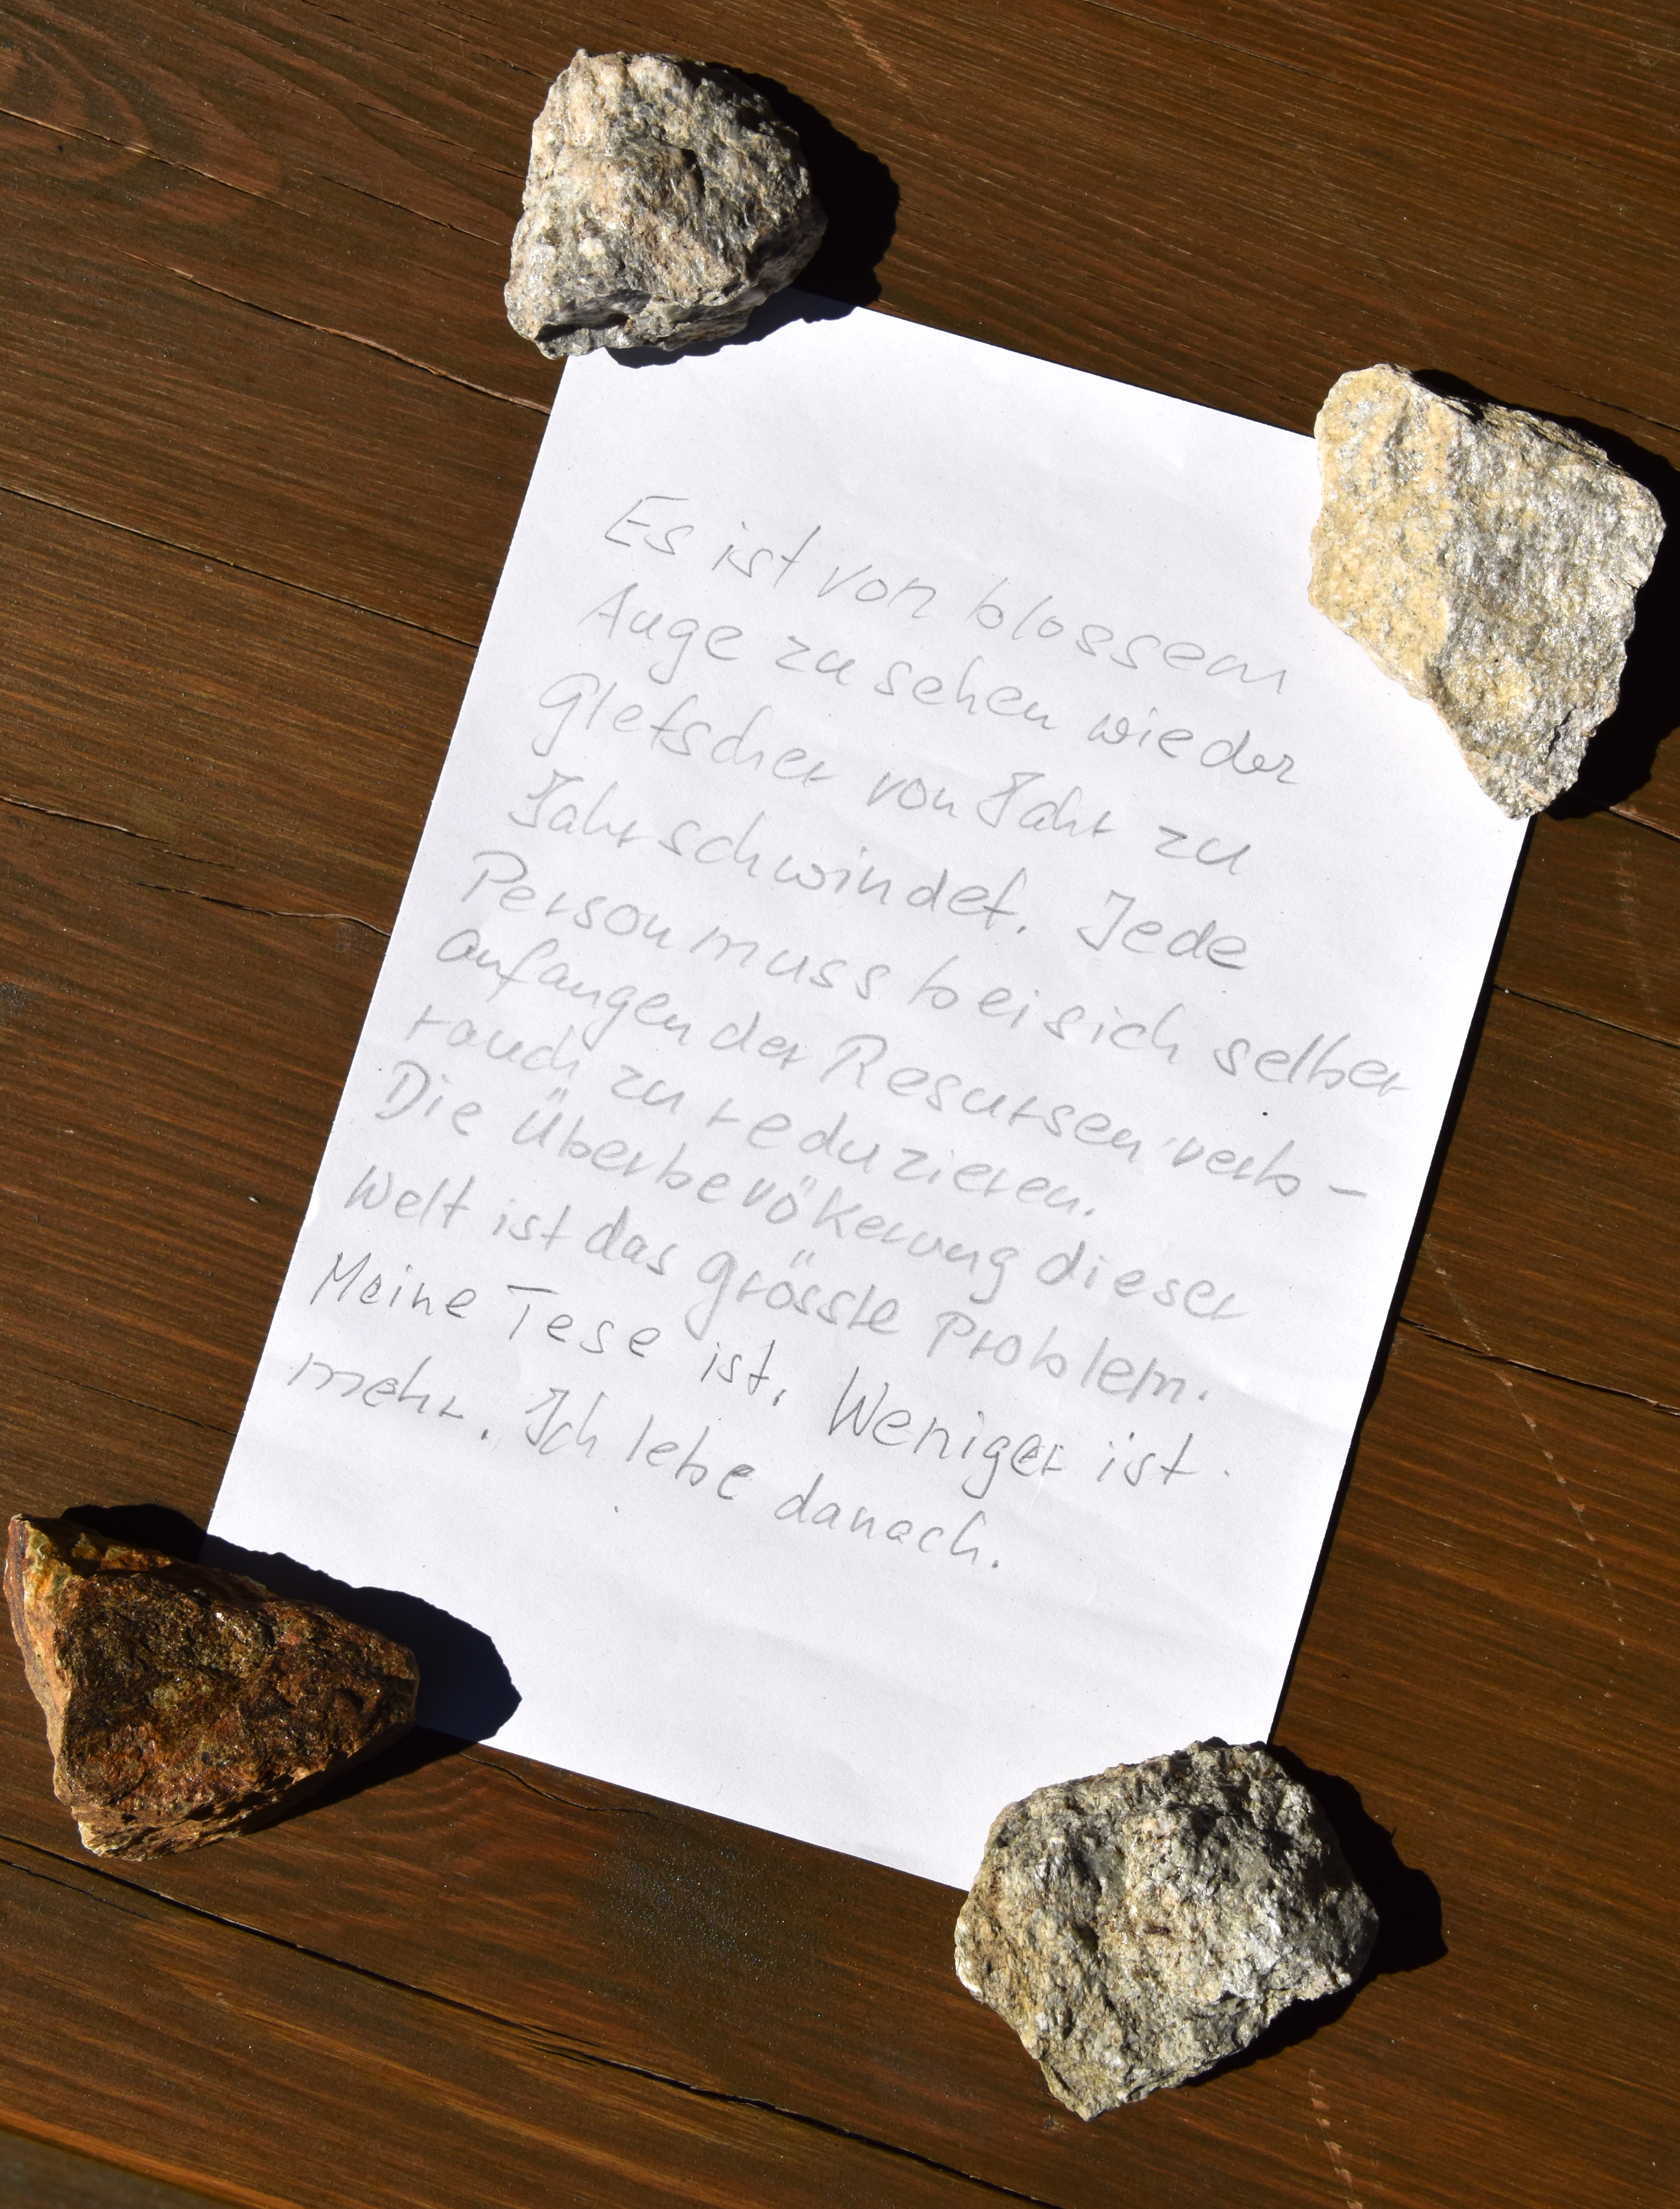 Es ist von blossem
Auge zu sehen wie der
Gletscher von Jahr zu
Jahr schwindet. Jede
Person muss bei sich selber
anfangen der Resursen verb-
rauch zu reduzieren.
Die Überbevökerung dieser
Welt ist das grösste Problem.
Meine Tese ist, Weniger ist
mehr. Ich lebe danach.